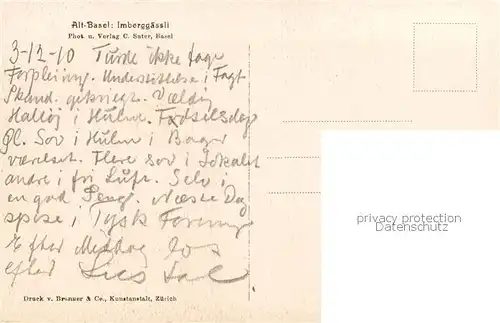 Alt-Basel: Imberggässli
Phot. u. Verlag C. Suter, Basel
3-12-10 Turde ikke tage
Forpleining. Understøttelse i Fagf.
Skand. Vældig
Halløj i Hulen. Fødselsdag
Gl. Sov i Hulen i Bager
værelset. Flere sov i Lokalet
andre i fri Luft. Selv i
en god Seng. Næste Dag
spise i Tysk Forening
Efter Middag
efter
privacy protection
(AnsichtskartenVersand.com)
Druck v. Brenner & Co., Kunstanstalt, Zürich